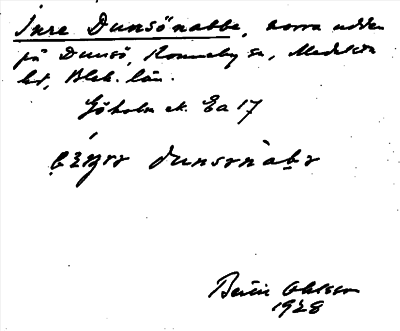 Inre Dunsönabbe, norra udden
på Dunsö, Ronneby sn, Medelsta
hd, Blek. län.
Göholm ek. Ea 17
dunsrnabr
1928